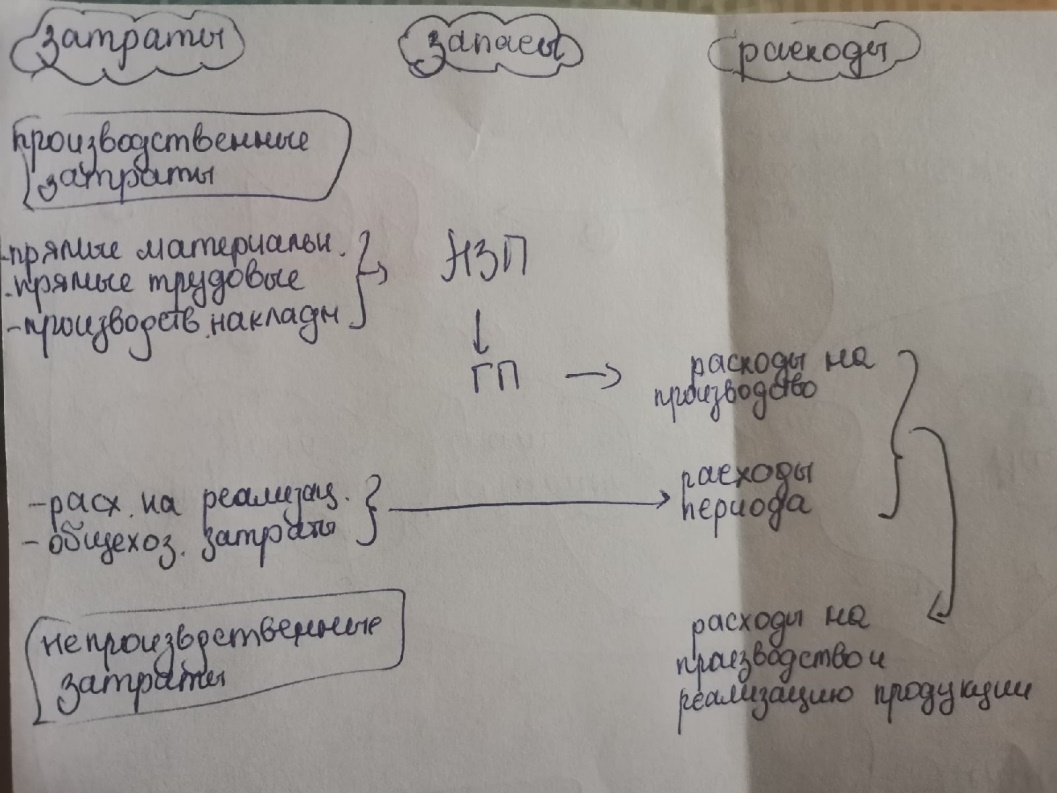 затраты
запасы
расходы
производственные
затраты
-прямые материальн.
-прямые трудовые
-производств. накладн
НЗП
ГП
расходы на
производство
-расх. на реализац.
-общехоз. затраты
расходы
периода
непроизводственные
затраты
расходы на
производство и
реализацию продукции